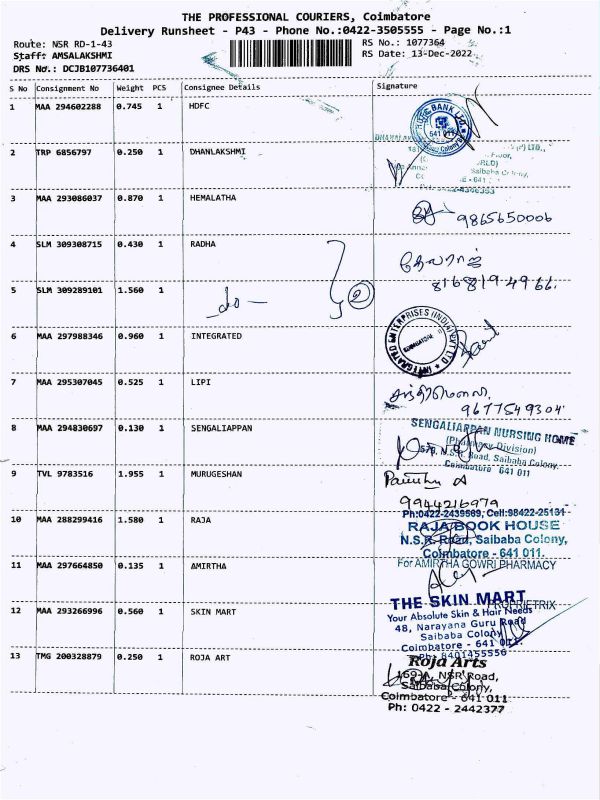 THE PROFESSIONAL COURIERS, Coimbatore
Delivery Runsheet - P43 - Phone No.:0422-3505555 - Page No.:1
Route: NSR RD-1-43
RS No.: 1077364
Staff: AMSALAKSHMI
RS Date: 13-Dec-2022
DRS No.: DCJB107736401
S No Consignment No Weight PCS Consignee Details Signature
1 MAA 294602288 0.745 1 HDFC
BANK LTD.
641 011
2 TRP 6856797 0.250 1 DHANLAKSHMI
(P) LTD.,
Saibaba Colony,
3 MAA 293086037 0.870 1 HEMALATHA
9865650006
4 SLM 309308715 0.430 1 RADHA
தேவராஜ்
8168194966.
5 SLM 309289101 1.560 1
do — 2
6 MAA 297988346 0.960 1 INTEGRATED
INTEGRATED ENTERPRISES (INDIA) PVT LTD
COIMBATORE
7 MAA 295307045 0.525 1 LIPI
9677549304
8 MAA 294830697 0.130 1 SENGALIAPPAN
SENGALIAPPAN NURSING HOME
(Pharmacy Division)
N.S.R. Road, Saibaba Colony,
Coimbatore 641 011
9 TVL 9783516 1.955 1 MURUGESHAN
9944216979
10 MAA 288299416 1.580 1 RAJA
Ph:0422-2439569, Cell:98422-25131
RAJA BOOK HOUSE
N.S.R. Road, Saibaba Colony,
Coimbatore - 641 011.
11 MAA 297664850 0.135 1 AMIRTHA
For AMIRTHA GOWRI PHARMACY
PROPRIETRIX
12 MAA 293266996 0.560 1 SKIN MART
THE SKIN MART
Your Absolute Skin & Hair Needs
48, Narayana Guru Road
Saibaba Colony
Coimbatore - 641 011.
Ph: 8401455556
13 TMG 200328879 0.250 1 ROJA ART
Roja Arts
169-A, NSR Road,
Saibaba Colony,
Coimbatore - 641 011
Ph: 0422 - 2442377